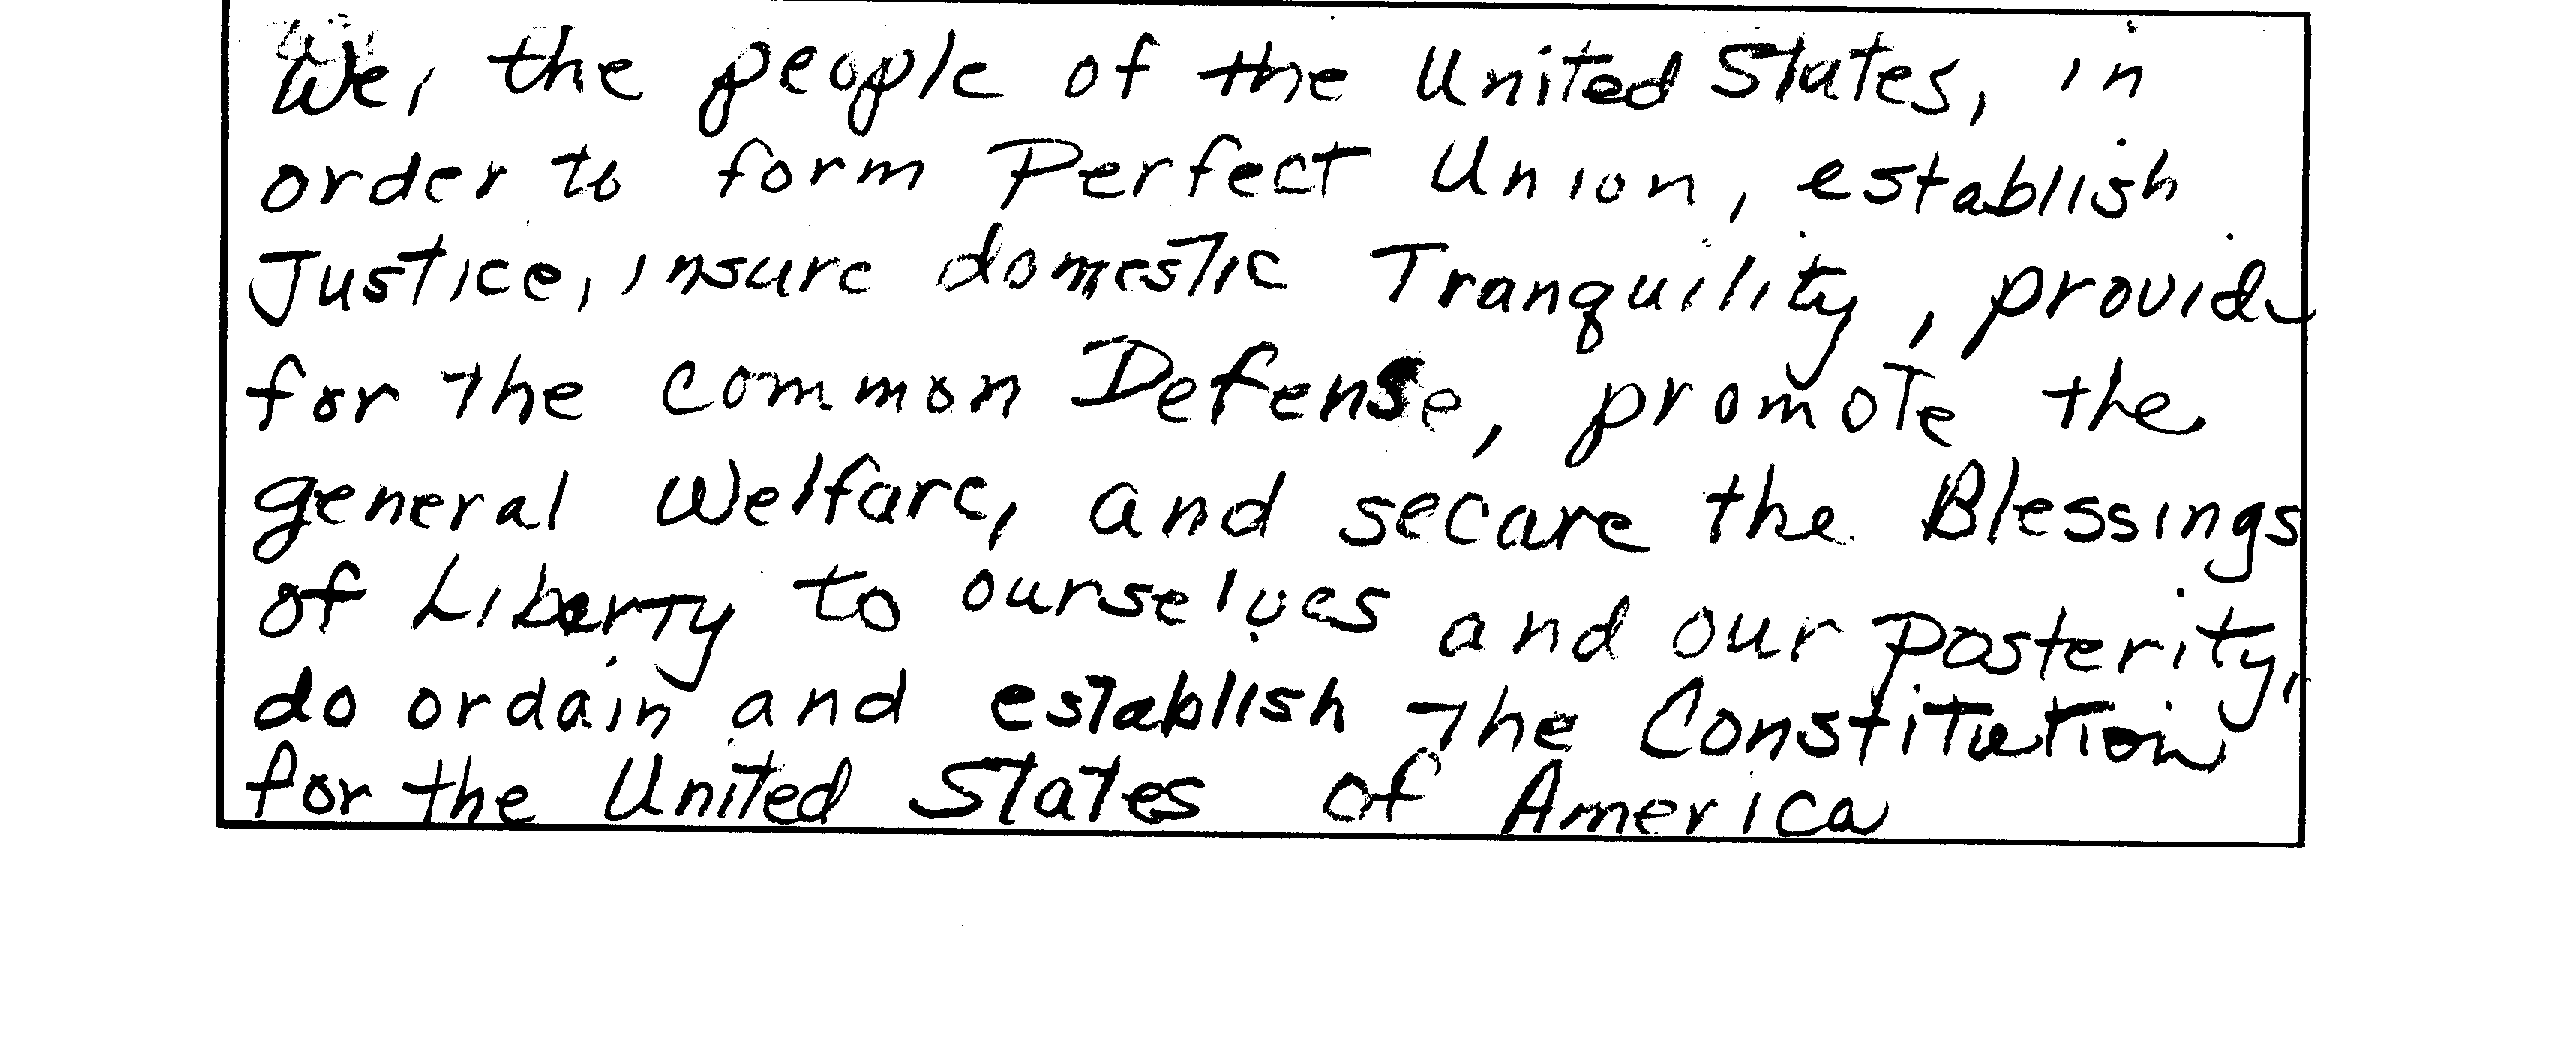 We, the people of the United States, in
order to form Perfect Union, establish
Justice, insure domestic Tranquility, provide
for the common Defense, promote the
general Welfare, and secare the Blessings
of Liberty to ourselves and our Posterity,
do ordain and establish the Constitution
for the United States of America